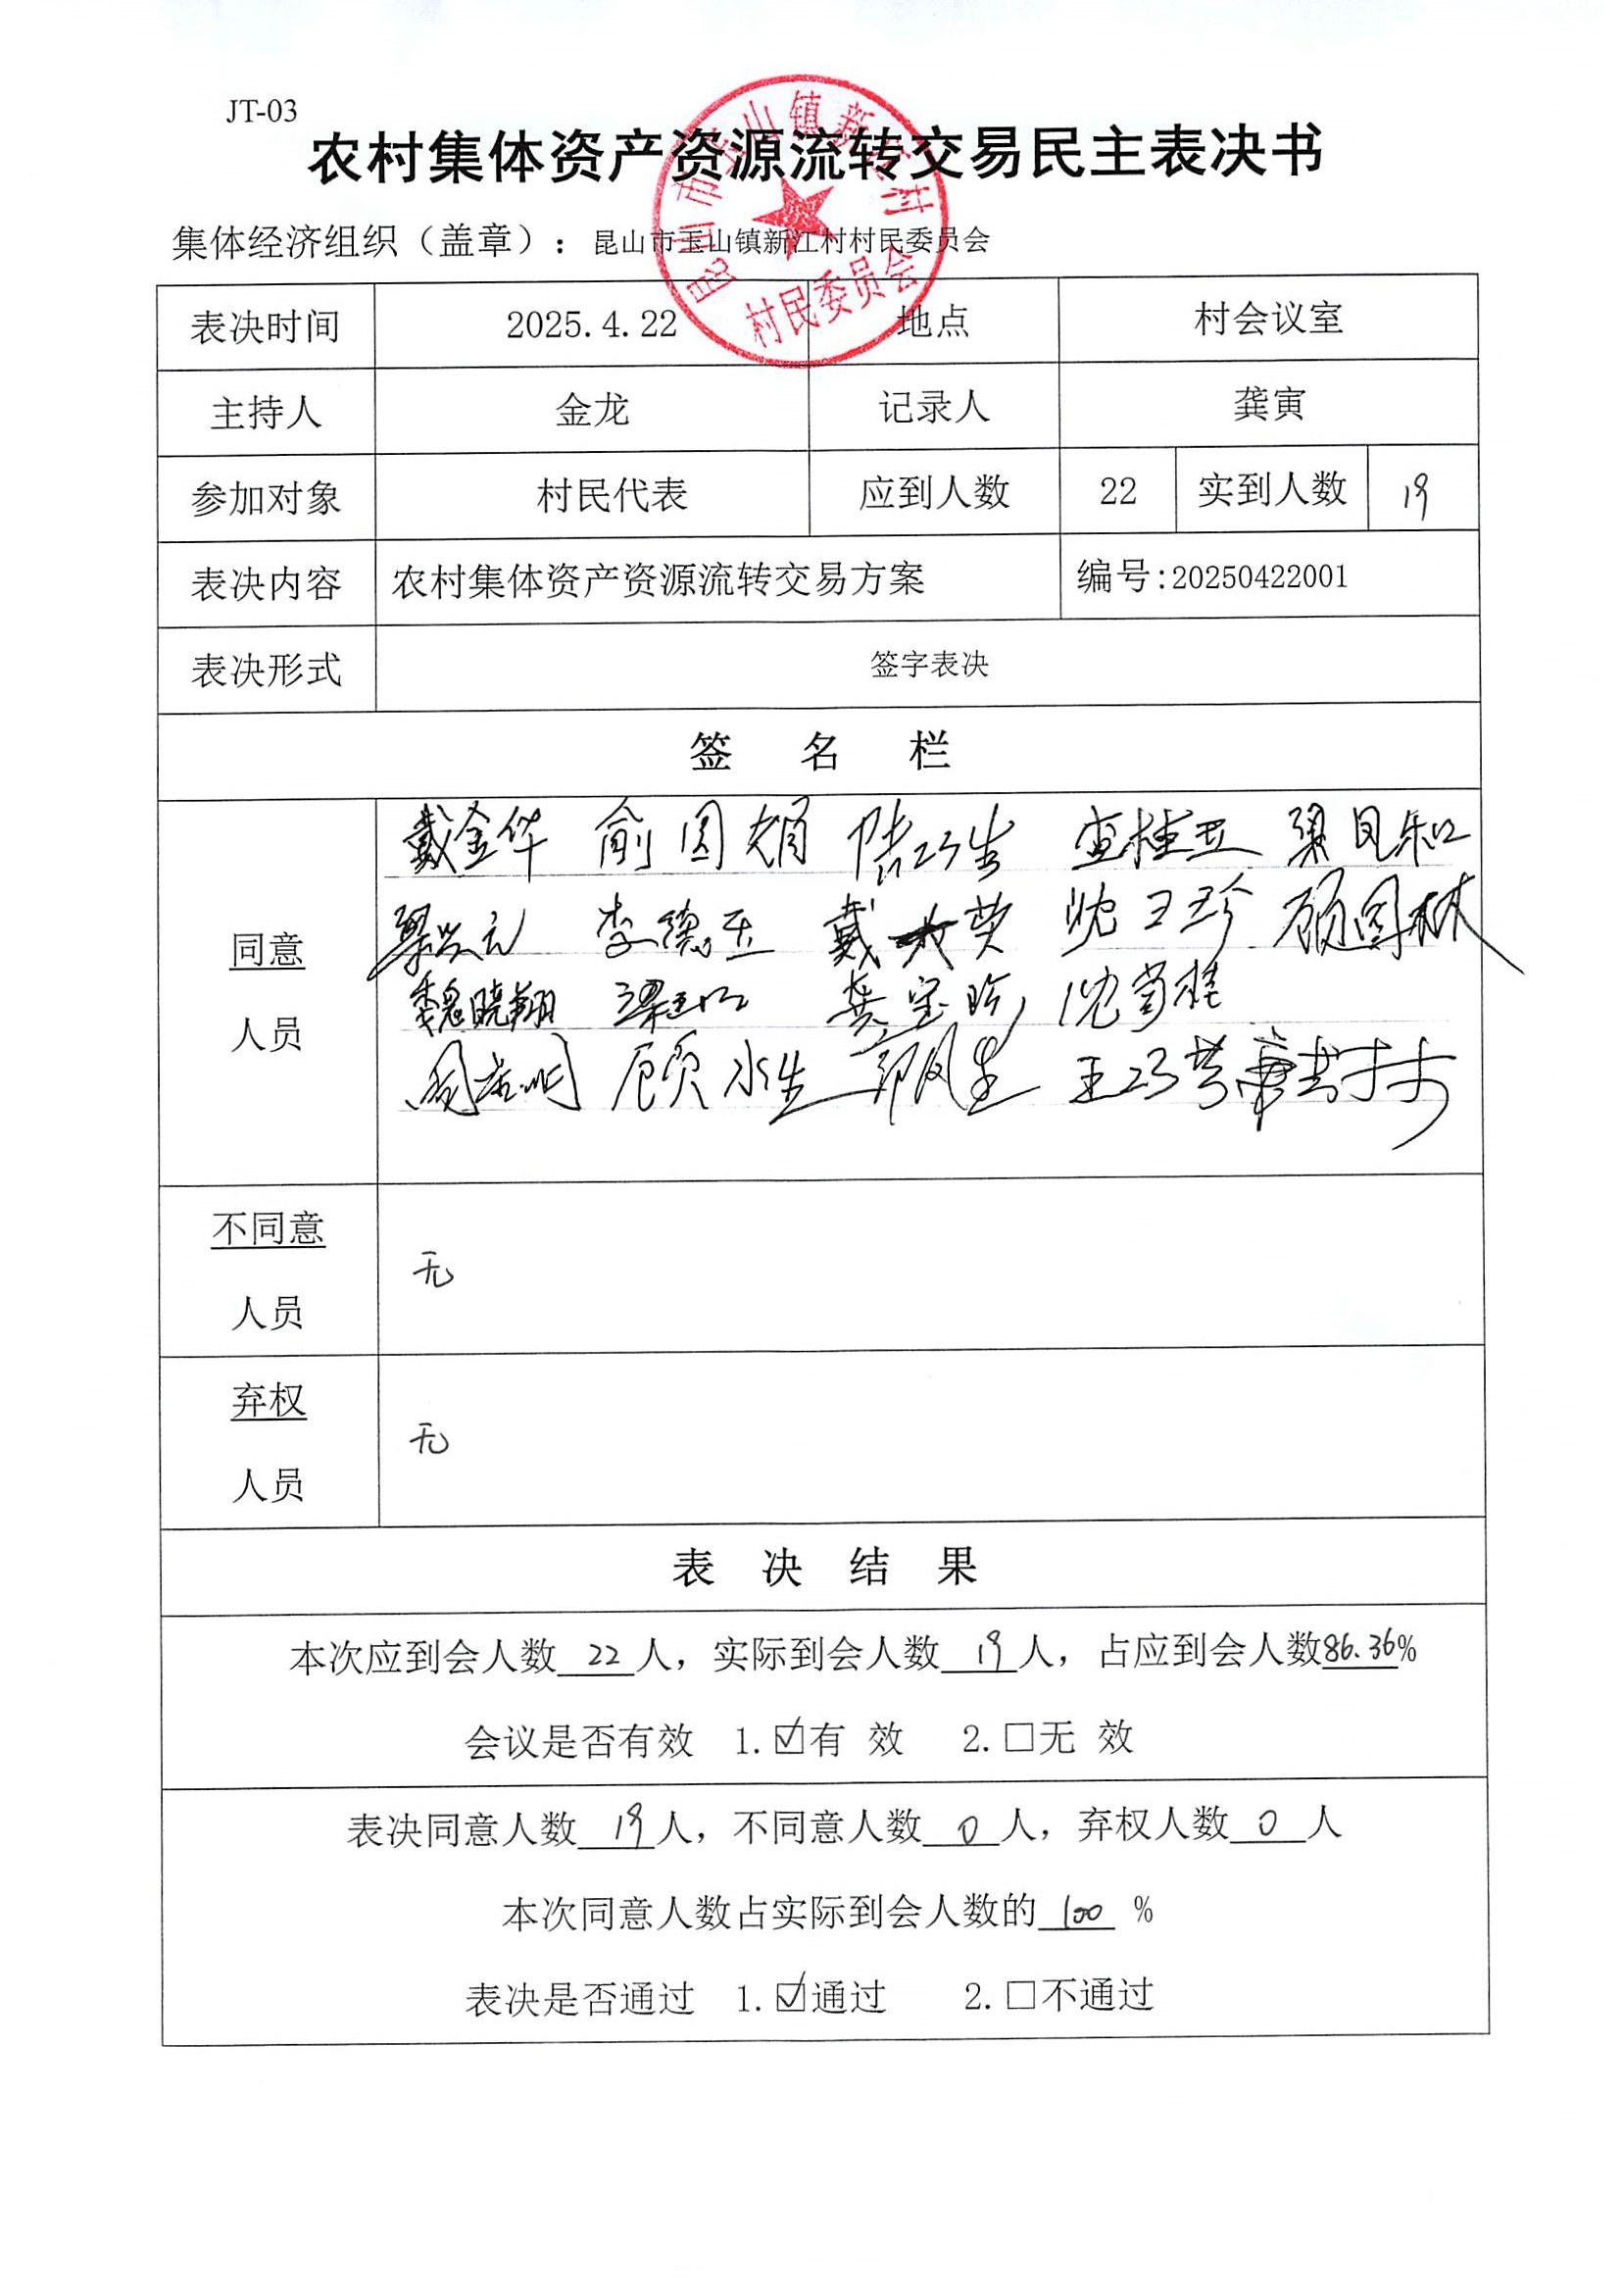 JT-03
农村集体资产资源流转交易民主表决书
集体经济组织（盖章）：昆山市玉山镇新江村村民委员会
昆山市玉山镇新江村
村民委员会
表决时间 2025.4.22 地点 村会议室
主持人 金龙 记录人 龚寅
参加对象 村民代表 应到人数 22 实到人数 19
表决内容 农村集体资产资源流转交易方案 编号:20250422001
表决形式 签字表决
签 名 栏
同意
人员
戴金华 俞圆娟 陆巧生 查桂亚 梁凤和
李德玉 沈卫珍 顾国林
魏晓翔 龚宝珍 沈菊桂
顾水生 王巧芳
不同意
人员
无
弃权
人员
无
表 决 结 果
本次应到会人数 22 人，实际到会人数 19 人，占应到会人数86.36%
会议是否有效 1.☑有 效 2.□无 效
表决同意人数 19 人，不同意人数 0 人，弃权人数 0 人
本次同意人数占实际到会人数的 100 %
表决是否通过 1.☑通过 2.□不通过